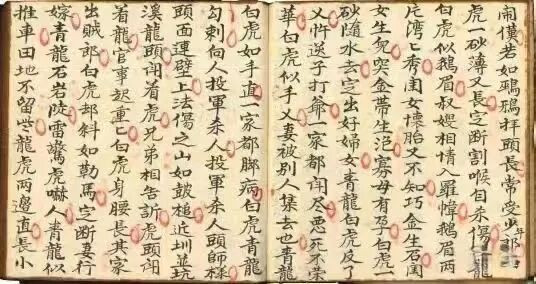 若如鴉拜頭長常受少年
虎一砂薄又長定断割喉自杀傷
白虎似鵝眉叔嫂相情入羅幃鵝眉两
片湾匕秀閨女懷胎又不知巧金生石
女生突金帶生絕寡母有孕白虎一
砂隨水去定出好婦女青龍白虎反了
又忤逆子打爺一家都闹尽惡死不荣
華白虎似手又妻被別人去也青龍
白虎如手直一家都脚病白虎青龍
勾刺向人投軍杀人投軍杀人頭師樣
頭面連壁上法傷之山如鼓槌近圳並坑
溪龍頭闹着虎兄弟相告訴虎頭闹
着龍官事起重匕白虎身腰長其家
出賊郎白虎部斜如勒馬定断妻行
嫁青龍石岩陡雷驚虎嚇人青龍似
推車田地不留些龍虎两邉直長小